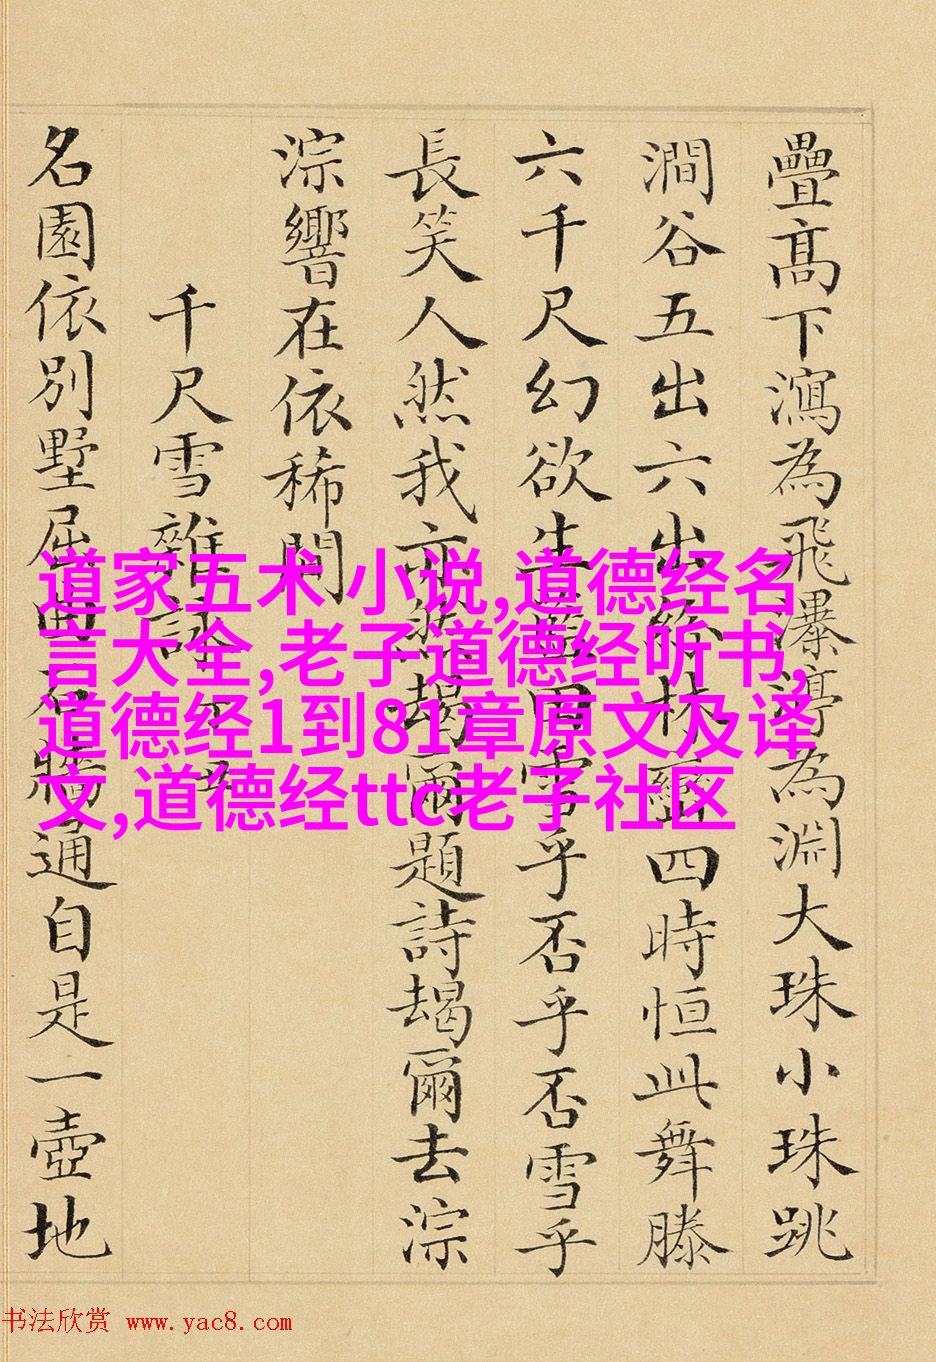 疊高下瀉為飛瀑渟為淵大珠小珠跳
澗谷五出六出林四時恒此舞滕
六千尺幻欲生用雪乎否乎否雪乎
長笑人然我亦然朅爾題詩朅爾去淙
淙響在依稀間
千尺雪雜詠
名園依別墅屈石牆通自是一壺地
道家五术 小说,道德经名
言大全,老子道德经听书,
道德经1到81章原文及译
文,道德经ttc老子社区
书法欣赏 www.yac8.com